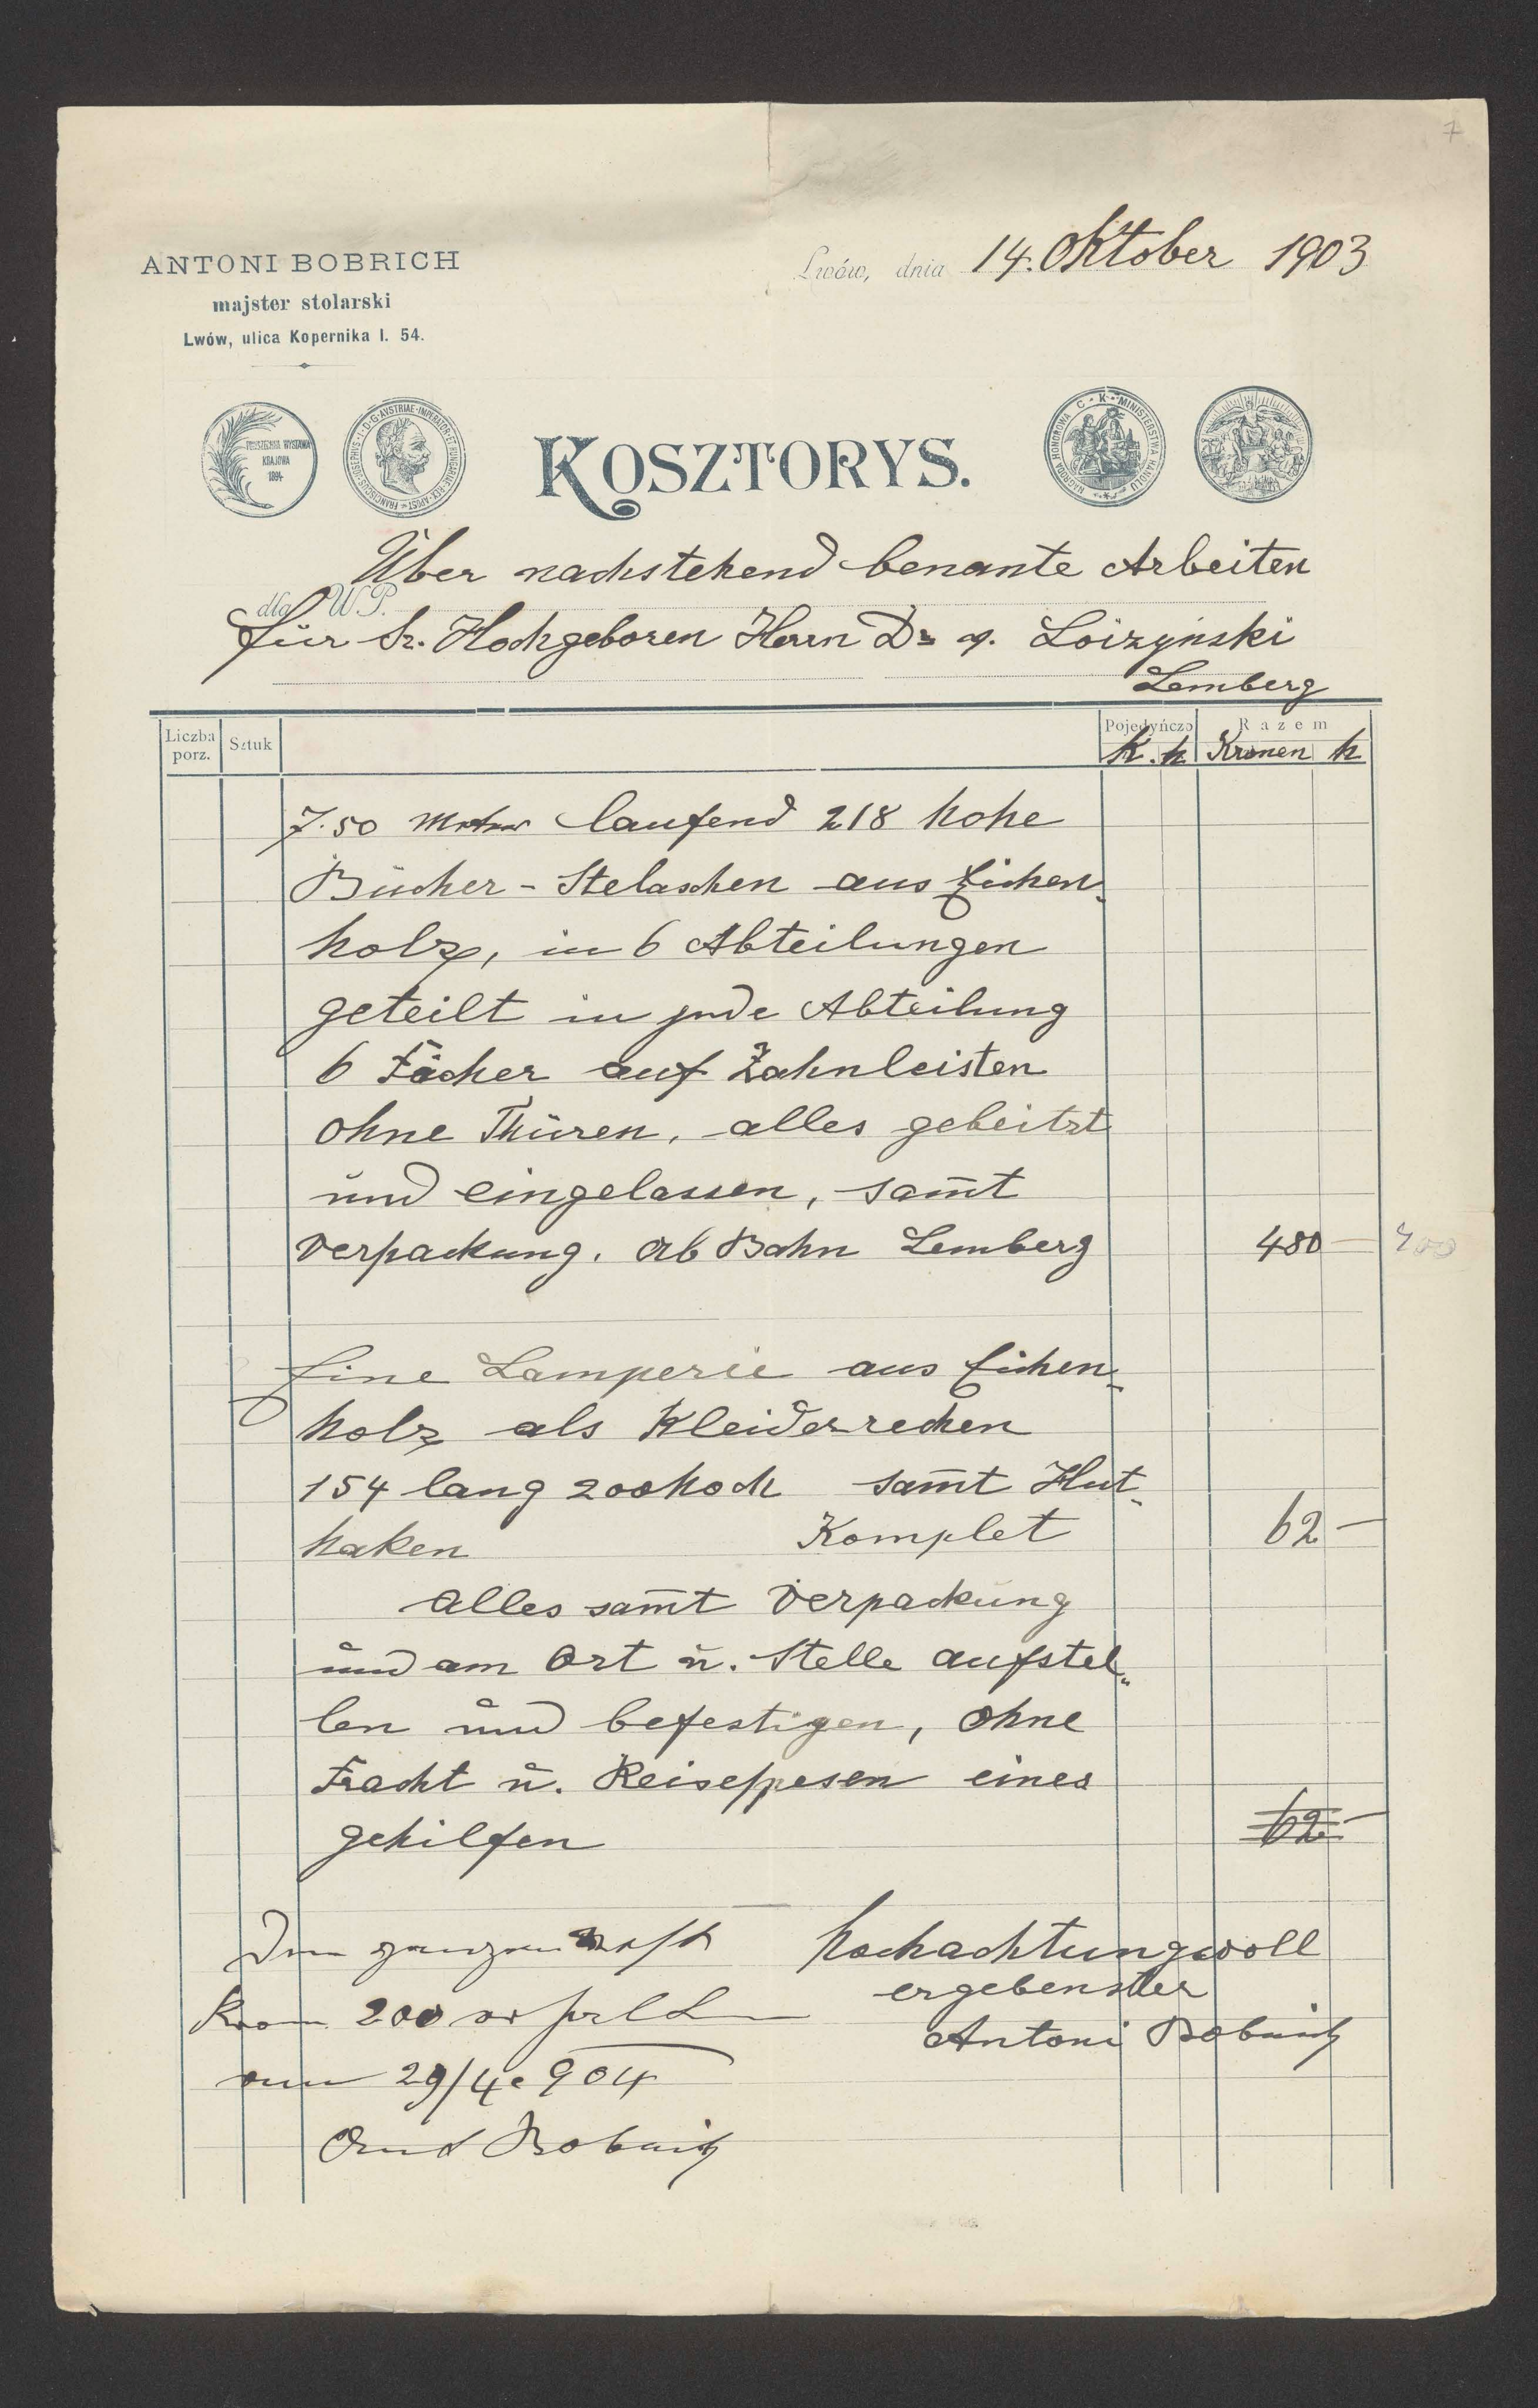 7
ANTONI BOBRICH
majster stolarski
Lwów, ulica Kopernika l. 54.
Lwów, dnia 14. Oktober 1903
POWSZECHNA WYSTAWA
KRAJOWA
1894
FRANCISCUS·IOSEPHUS·I·D·G·AVSTRIAE·IMPERATOR·ET·HUNGARIAE·REX·APOST
NAGRODA HONOROWA C·K·MINISTERSTWA HANDLU
KOSZTORYS.
Über nachstehend benante Arbeiten
dla W P.
für Sr. Hochgeboren Herrn Dr v. Loizynski
Lemberg
Liczba porz. Sztuk Pojedyńczo Razem
K. h Kronen h
7.50 Meter laufend 218 hohe
Bücher-Stelaschen aus Eichen-
holz, in 6 Abteilungen
geteilt in jede Abteilung
6 Fächer auf Zahnleisten
ohne Thüren, alles gebeitzt
und eingelassen, sam̄t
Verpackung. ab Bahn Lemberg 480 — 400
Eine Lamperie aus Eichen-
holz als Kleiderrechen
154 lang 200 hoch sam̄t Hut-
haken Komplet 62 —
alles sam̄t Verpackung
und am Ort u. Stelle aufstel-
len und befestigen, ohne
Fracht u. Reisespesen eines
gehilfen 62 —
Den ganzen
hochachtungsvoll
200
ergebenster
Antoni Bobrich
29/4 904
Bobrich